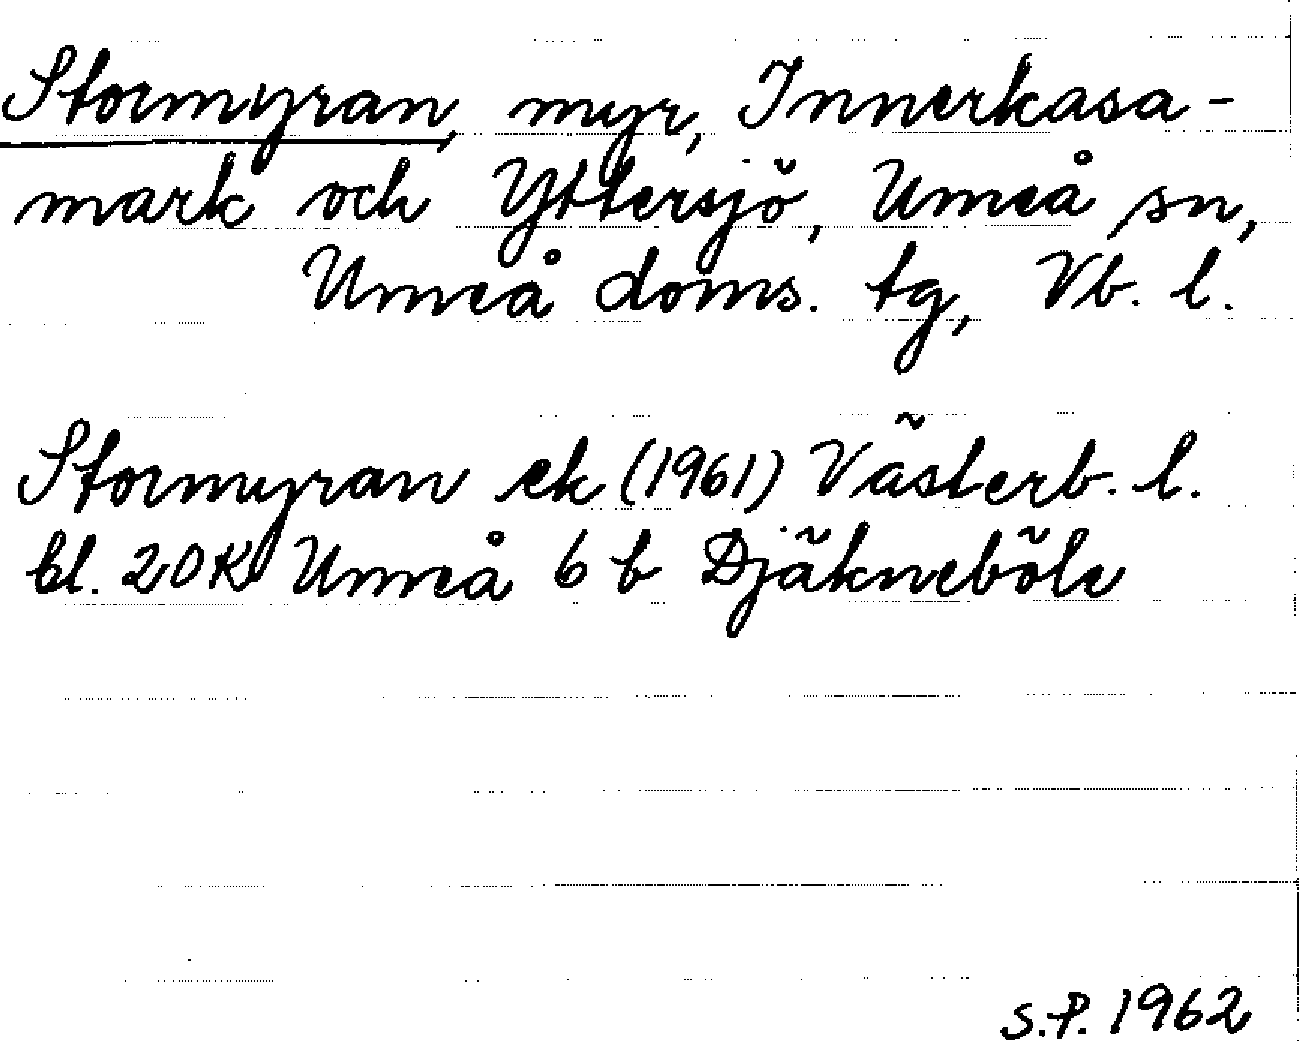 Stormyran, myr, Innerkasa-
mark och Yttersjö, Umeå sn,
Umeå doms. tg, Vb. l.
Stormyran ek (1961) Västerb. l.
bl. 20K Umeå 6 b Djäkneböle
S.P. 1962